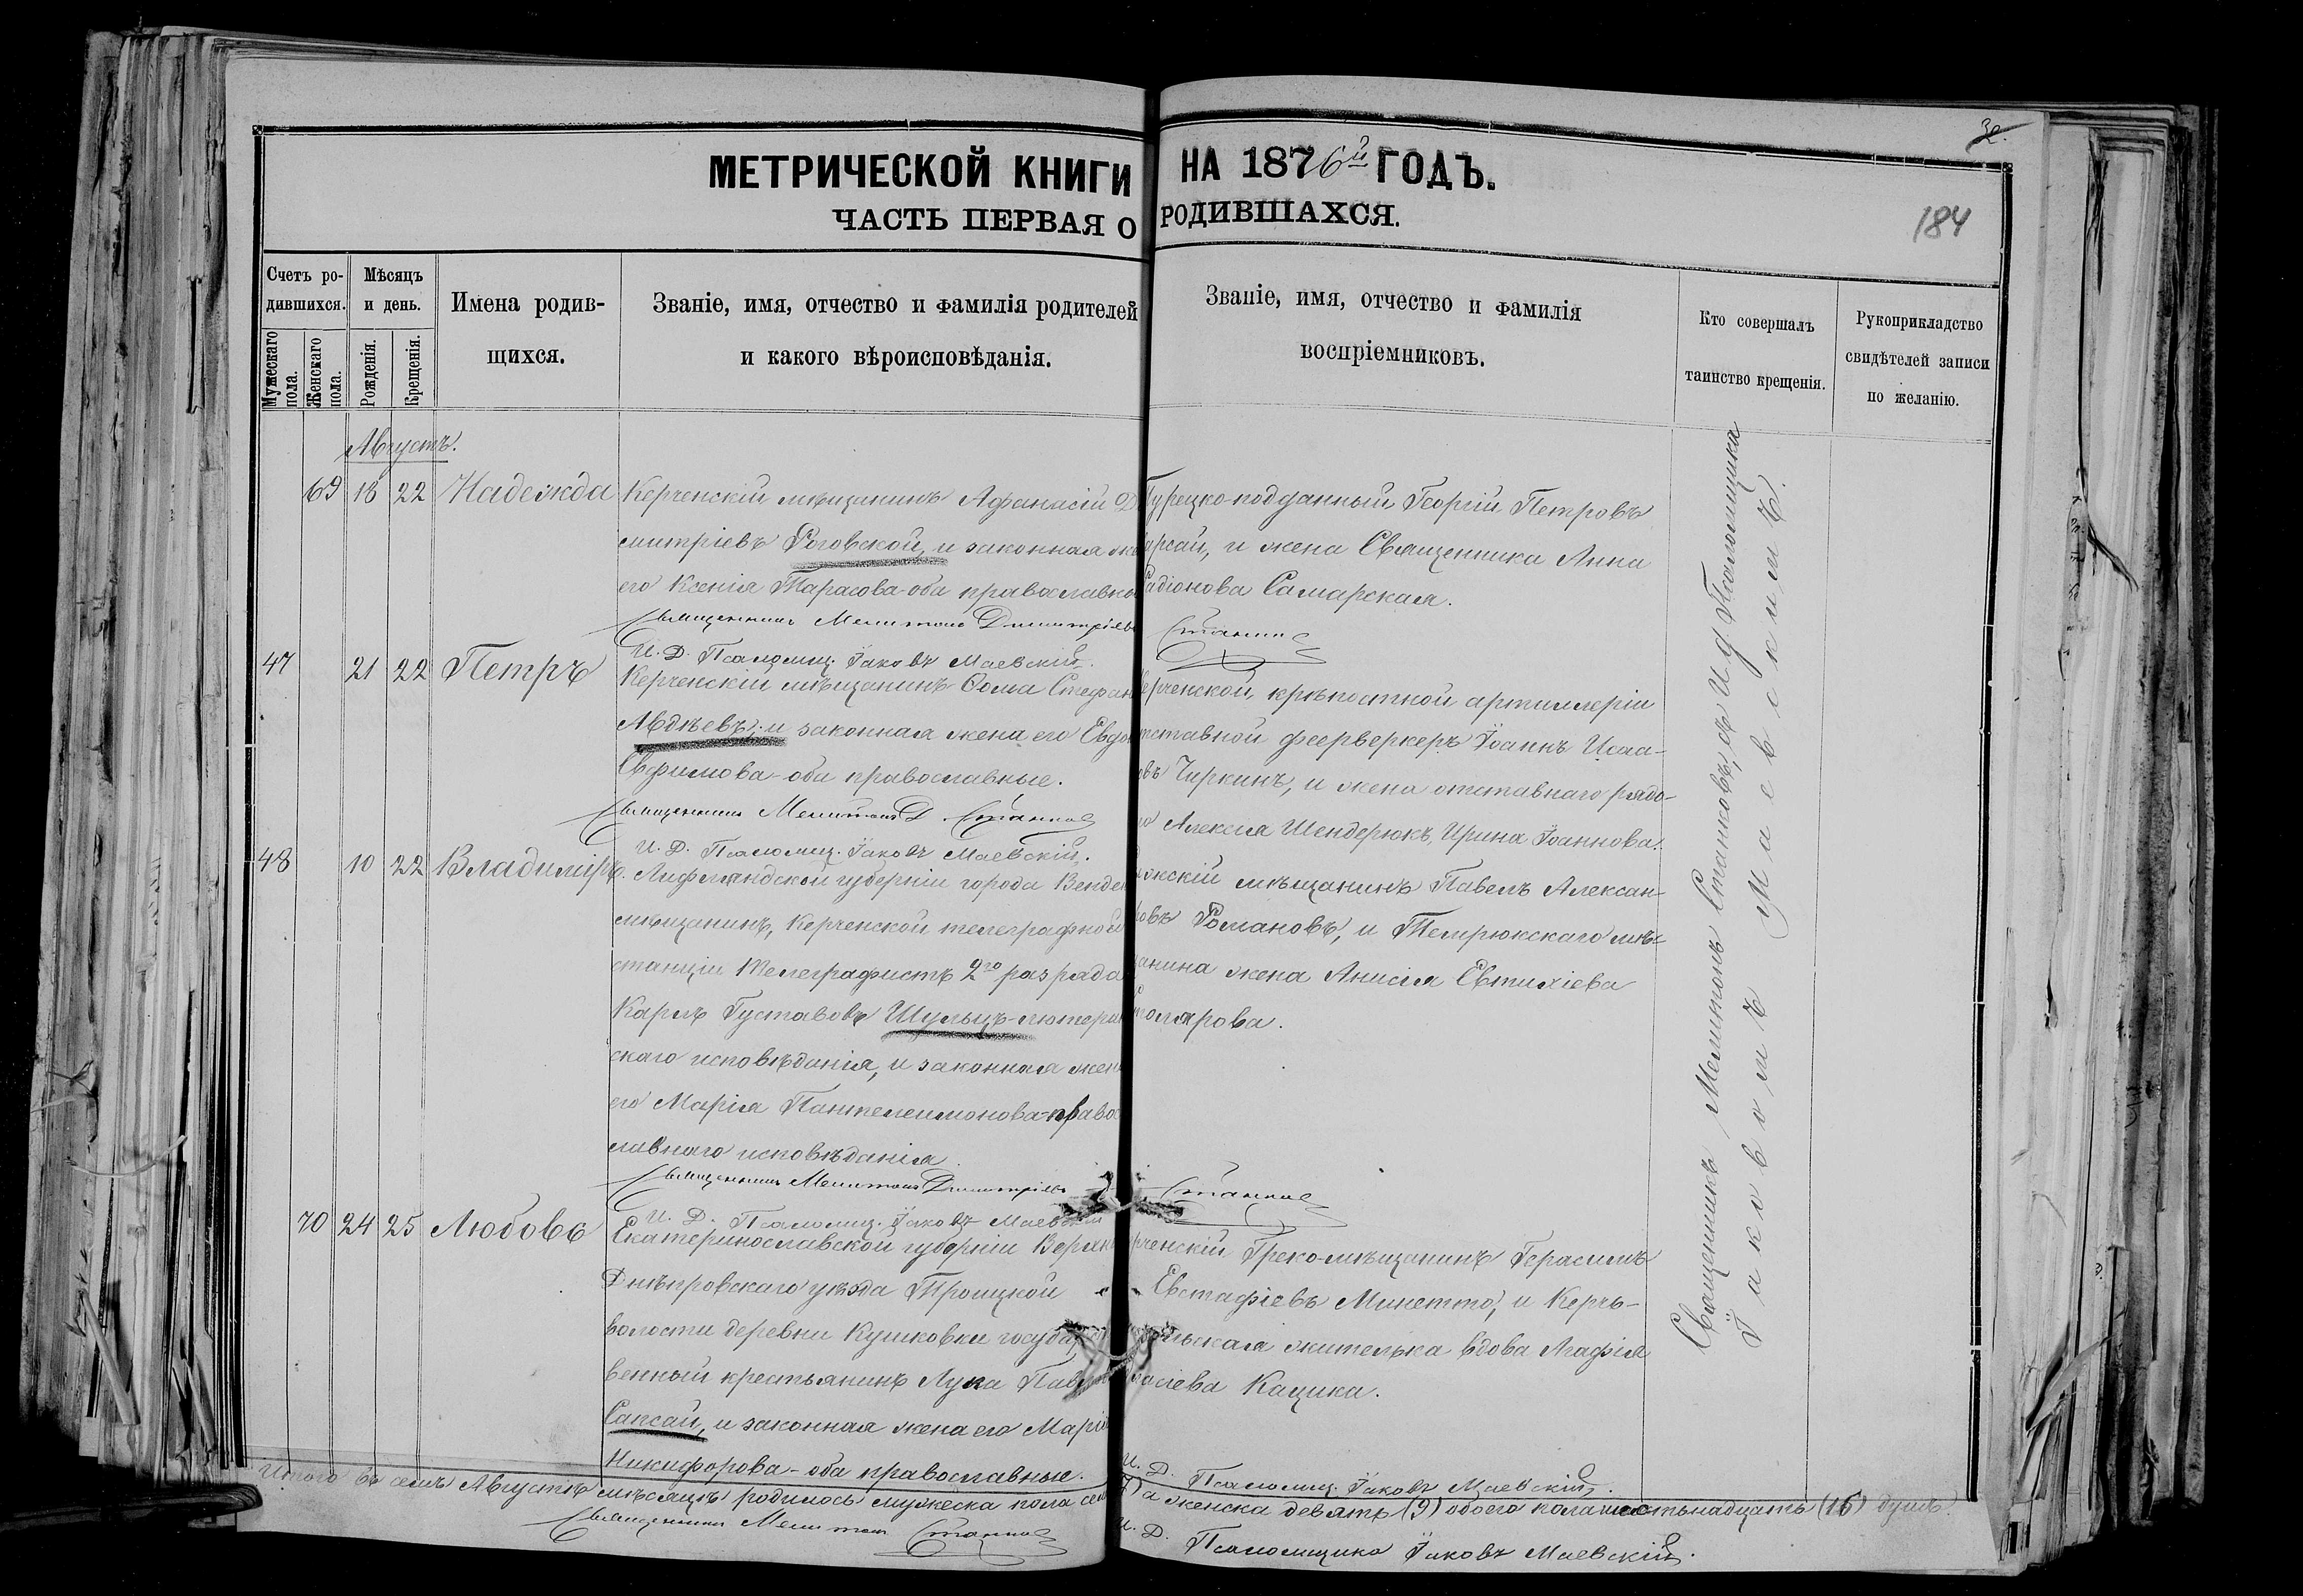 32.
МЕТРИЧЕСКОЙ КНИГИ НА 1876й ГОДЪ.
ЧАСТЬ ПЕРВАЯ О РОДИВШАХСЯ.
184
Счетъ родившихся.
Мужескаго пола.
Женскаго пола.
Мѣсяцъ и день.
Рожденія.
Крещенія.
Имена родив-
щихся.
Званіе, имя, отчество и фамилія родителей
и какого вѣроисповѣданія.
Званіе, имя, отчество и фамилія
воспріемниковъ.
Кто совершалъ
таинство крещенія.
Рукоприкладство
свидѣтелей записи
по желанію.
Августъ.
69 18 22 Надежда
Керченскій мѣщанинъ Афанасій Д
митріевъ Роговской, и законная же
его Ксенія Тарасова-оба православны
Турецко-подданный Георгій Петровъ
арсай, и жена Священника Анна
Радіонова Самарская.
Священникъ Мелитонъ Димитріевъ Станковъ
И. Д. Псаломщ. Іаковъ Маевскій.
47 21 22 Петръ
Керченскій мѣщанинъ Ѳома Стефан
Авдѣевъ, и законная жена его Евдо
Евфимова-оба православные.
Керченской крѣпостной артиллеріи
отставной фееерверкеръ Іоаннъ Исаа-
овъ Чиркинъ, и жена отставнаго рядо-
го Алексѧ Шендерюкъ, Ирина Іоаннова.
Священникъ Мелитонъ Д Станковъ
И. Д. Псаломщ. Іаковъ Маевскій.
48 10 22 Владиміръ.
Лифляндской губерніи города Венден
мѣщанинъ, Керченской телеграфной
станціи Телеграфистъ 2го разряда
Карлъ Густавовъ Шульцъ-лютеран
скаго исповѣданія, и законная жен
его Марія Пантелеимонова-право
славнаго исповѣданія.
мѣщанинъ Павелъ Алексан-
ровъ Романовъ, и Темрюкскаго мѣ-
щанина жена Анисія Евтихіева
Столярова.
Священникъ Мелитонъ Димитріевъ Станковъ
И. Д. Псаломщ. Іаковъ Маевскій
70 24 25 Любовь
Екатеринославской губерніи Верхн
Днѣпровскаго уѣзда Троицкой
волости деревни Кушковки государст
венный крестьянинъ Лука Павлов
Сапсай, и законная жена его Марія
Никифорова-оба православные.
рченскій Греко-мѣщанинъ Герасимъ
Евстафіевъ Минетто, и Керчь-
жителька вдова Агафія
Кацика.
И. Д. Псаломщ. Іаковъ Маевскій.
Священникъ Мелитонъ Станковъ, съ И д Псаломщика
Іаковомъ Маевскимъ.
Итого въ семъ Августѣ мѣсяцѣ родилось мужеска пола сем (7) а женска девять (9) обоего пола шестьнадцать (16) душъ.
Священникъ Мелитонъ Станковъ
И. Д. Псаломщика Іаковъ Маевскій.